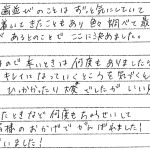 歯並びのことは ずっと気にしていて
着いてきたこともあり 色々調べて最
が あるとのことで ここに決めました。
ので 来たいときは何度もありましたが
キレイになっていくところを 気づくも
ひっかかったり 大変でしたが いい
たときなど何度もちょうせいして
様のおかげで がんばれました！
いました！